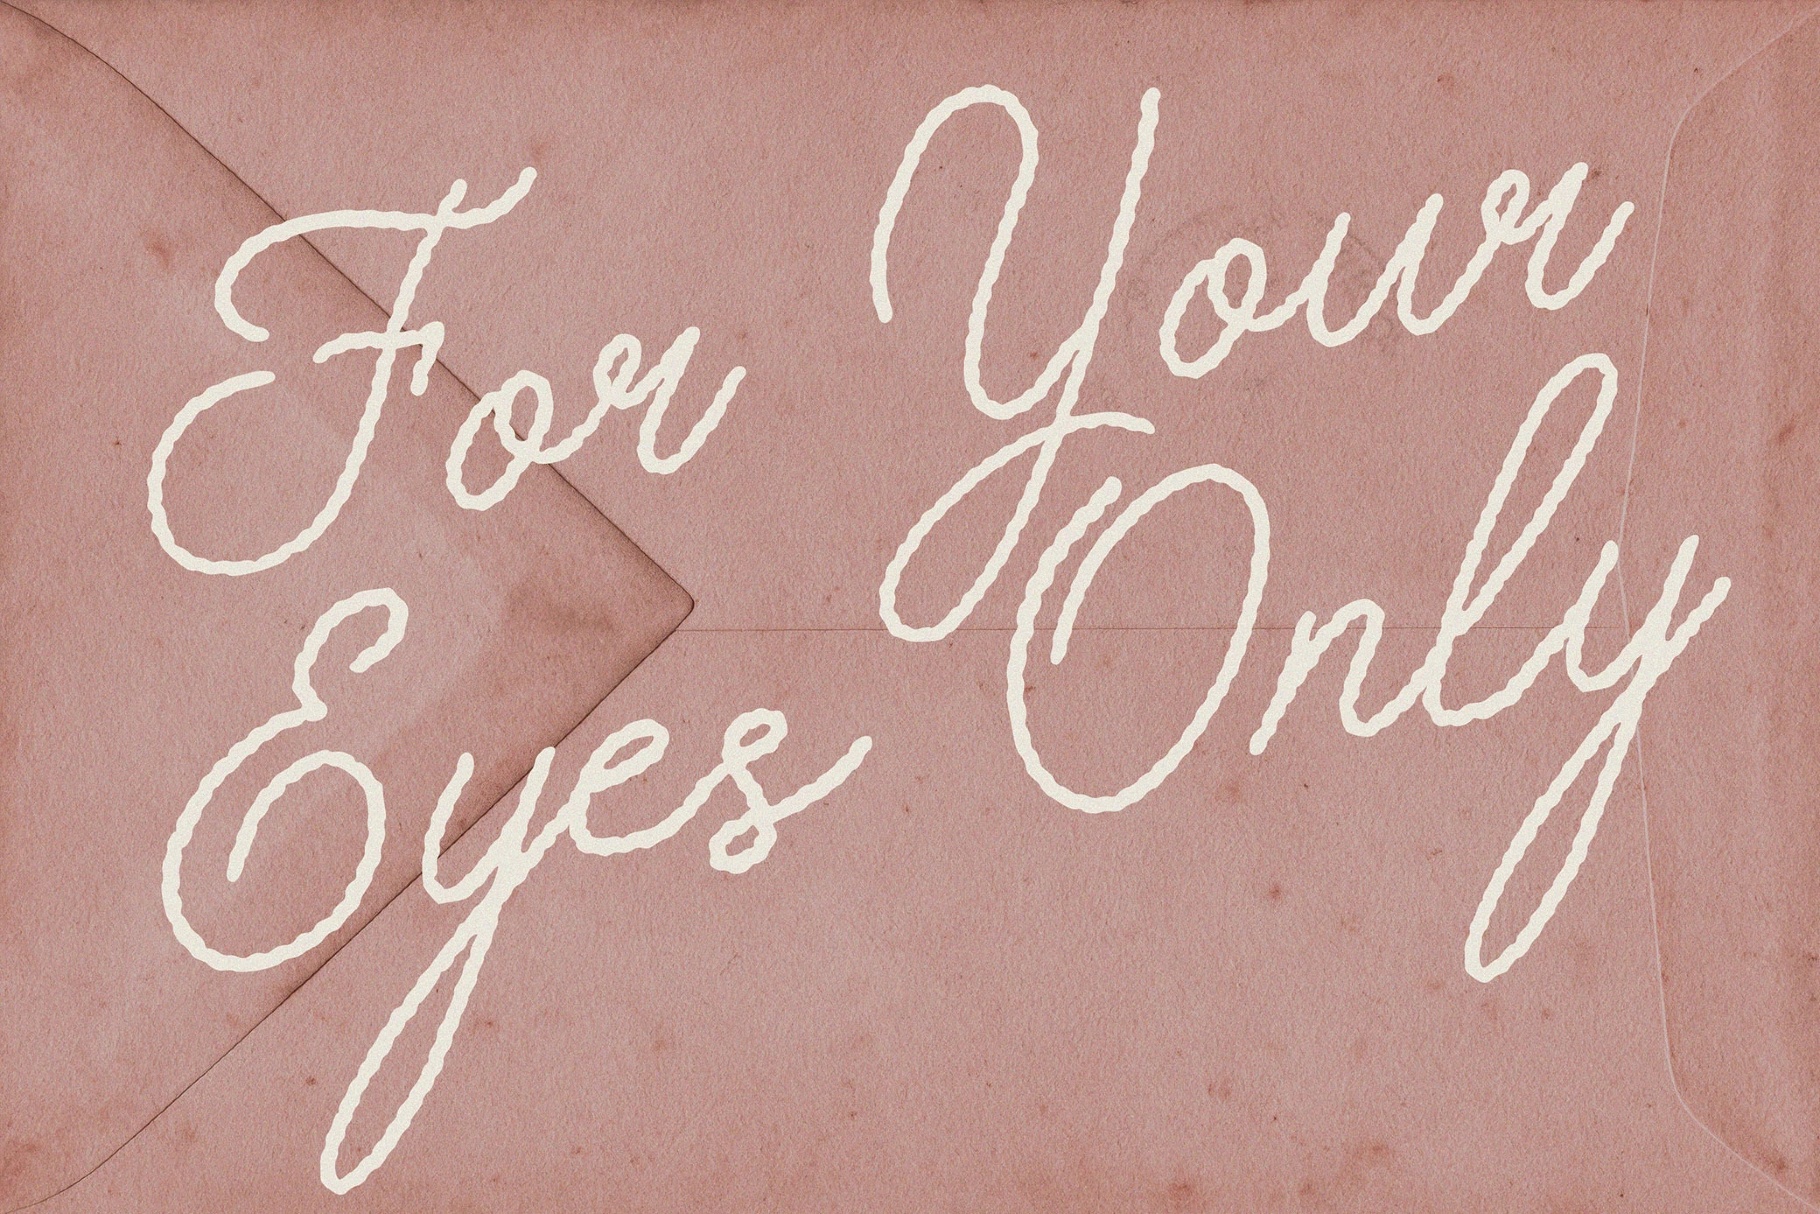 For Your
Eyes Only